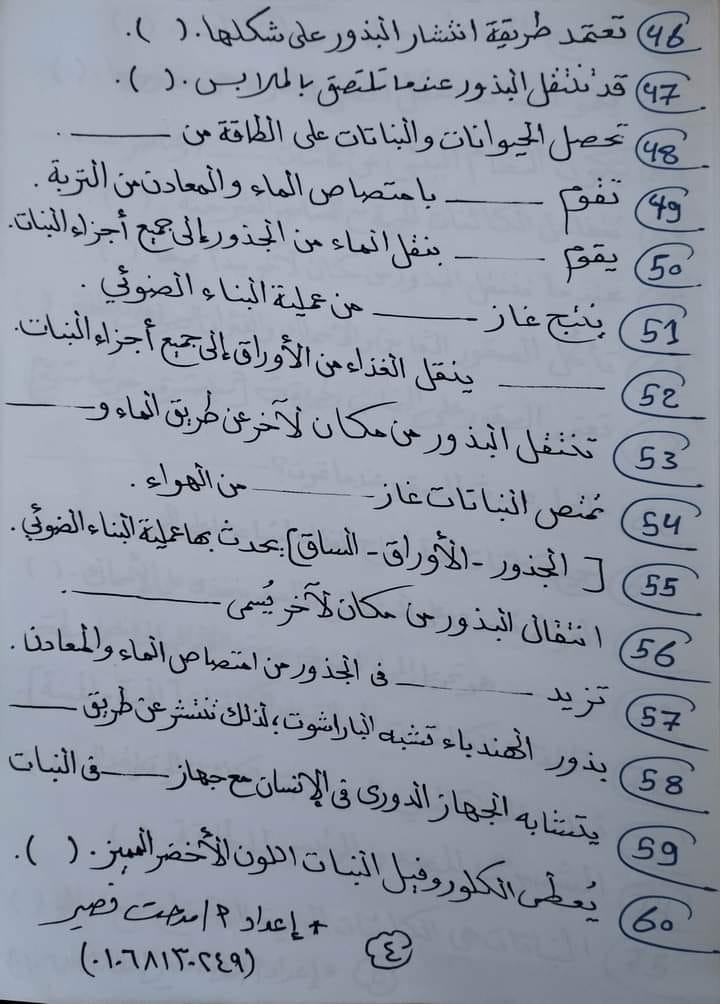 46 تعتمد طريقة انتشار البذور على شكلها. ( ).
47 قد تنتقل البذور عندما تلتصق بالملابس. ( ).
48 تحصل الحيوانات والنباتات على الطاقة من ______.
49 تقوم ______ بامتصاص الماء والمعادن من التربة.
50 يقوم ______ بنقل الماء من الجذور إلى جميع أجزاء النبات.
51 ينتج غاز ______ من عملية البناء الضوئي.
52 ______ ينقل الغذاء من الأوراق إلى جميع أجزاء النبات.
53 تنتقل البذور من مكان لآخر عن طريق الماء و______
54 تمتص النباتات غاز ______ من الهواء.
55 [الجذور - الأوراق - الساق] يحدث بها عملية البناء الضوئي.
56 انتقال البذور من مكان لآخر يُسمى ______.
57 تزيد ______ فى الجذور من امتصاص الماء والمعادن.
58 بذور الهندباء تشبه الباراشوت؛ لذلك تنتشر عن طريق ______
59 يتشابه الجهاز الدورى فى الإنسان مع جهاز ______ فى النبات
60 يُعطى الكلوروفيل النبات اللون الأخضر المميز. ( ).
* إعداد م/ مدحت قصير
(٠١٠٦٨١٣٠٢٤٩)
٤